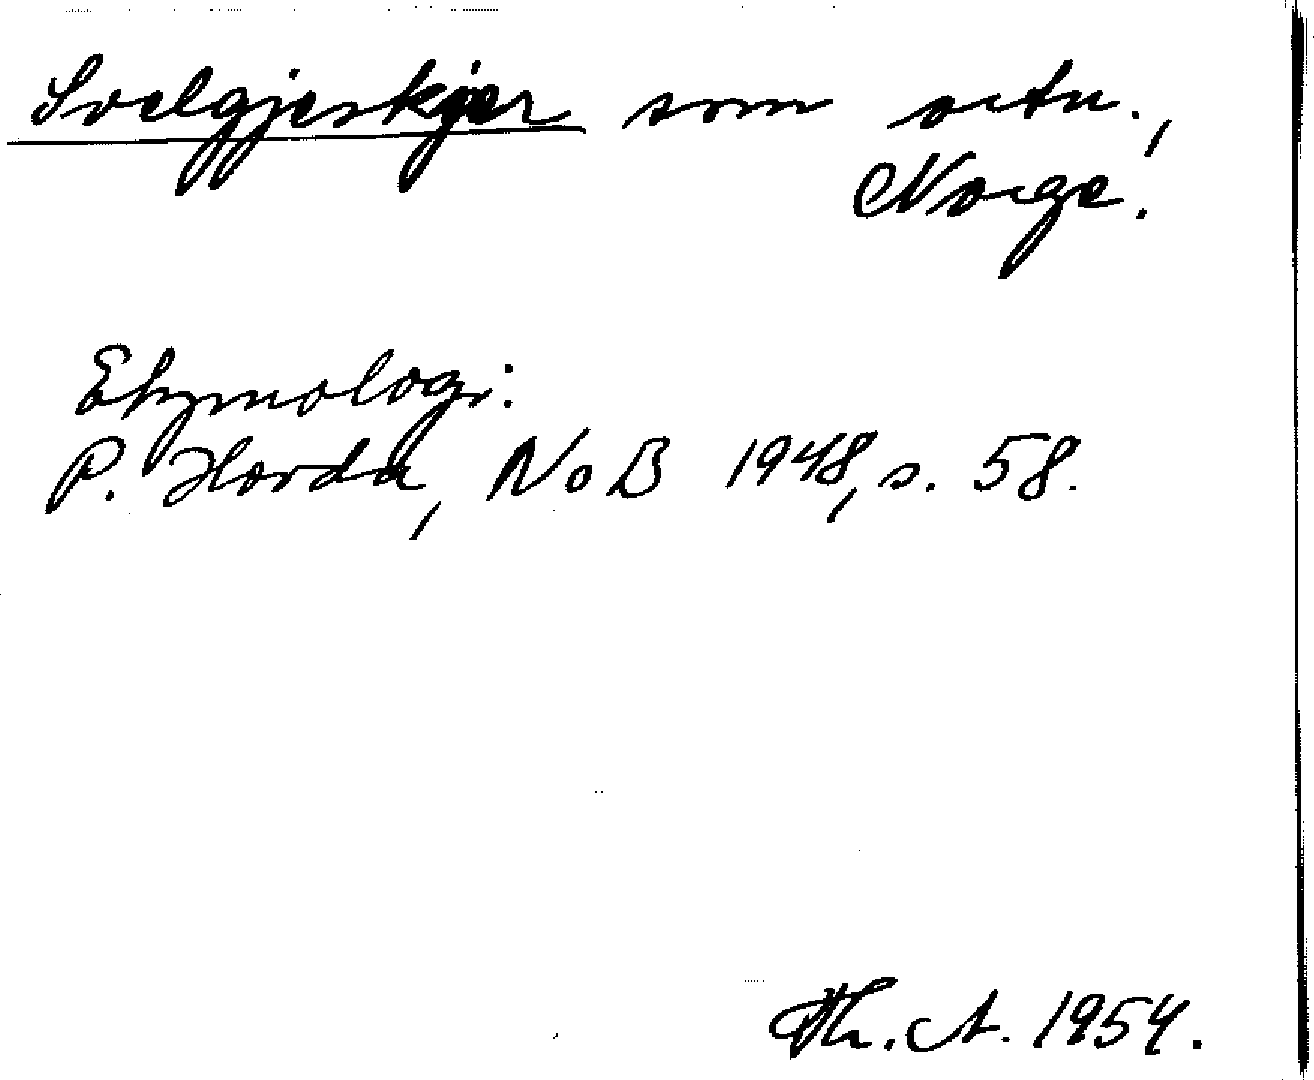 Svelgjeskjer som ortn.,
Norge.
Etymologi:
P. Hovda, NoB 1948, s. 58.
Th. A. 1954.